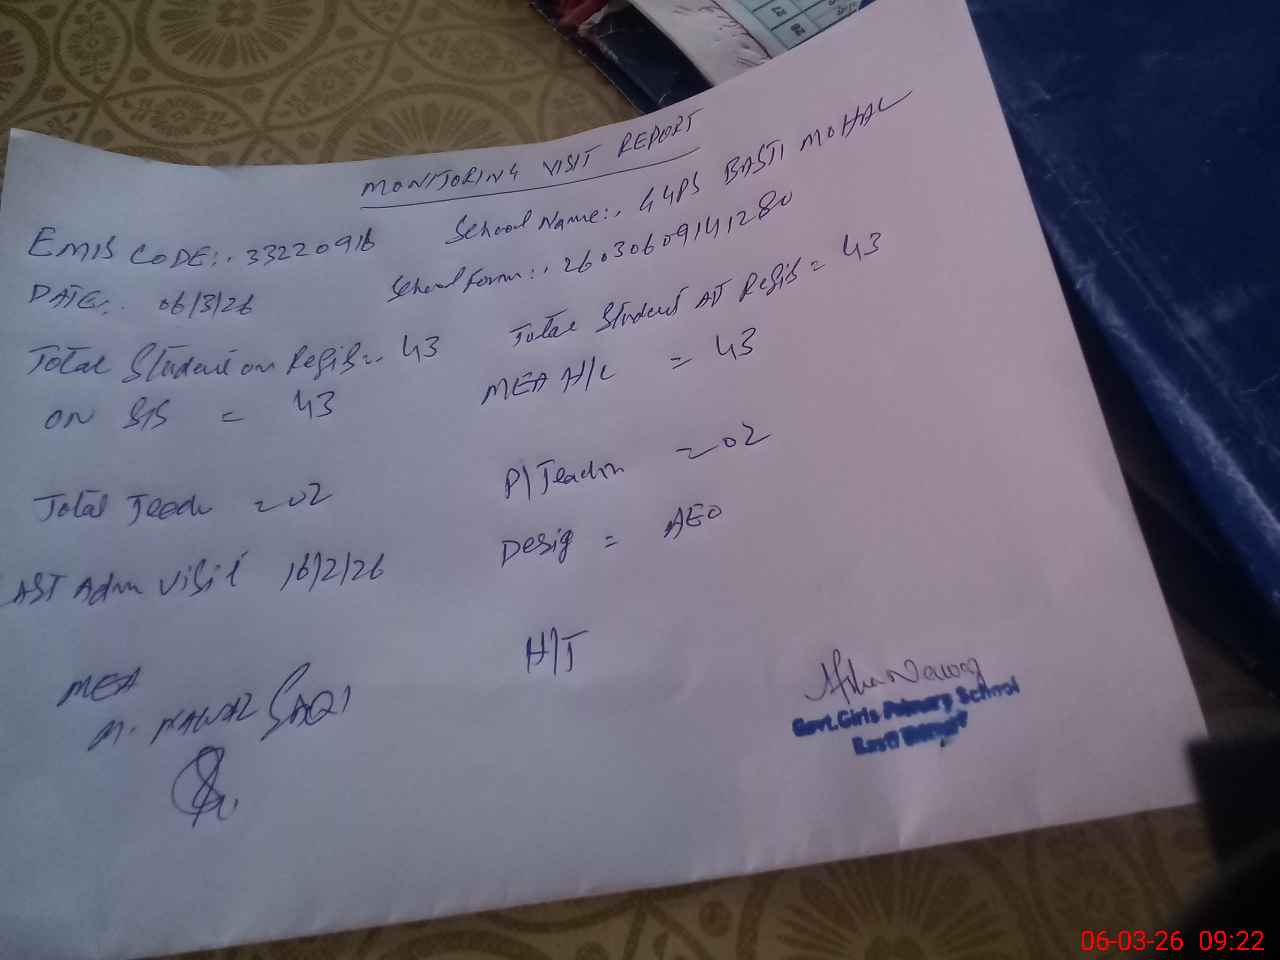 MONITORING VISIT REPORT
EMIS CODE:. 33220916 School Name:. GGPS BASTI MOHAL
DATE:. 06/3/26 School Form:. 26030609141280
Total Student on Regis = 43 Total Student AT Regis = 43
ON SIS = 43 MEA H/C = 43
Total Teach = 02 P/Teachr = 02
AST Adm Visit 16/2/26 Desig = AEO
MEA H/T
M. NAWAZ SAQI
Govt. Girls Primary School
Basti
27
28
06-03-26 09:22